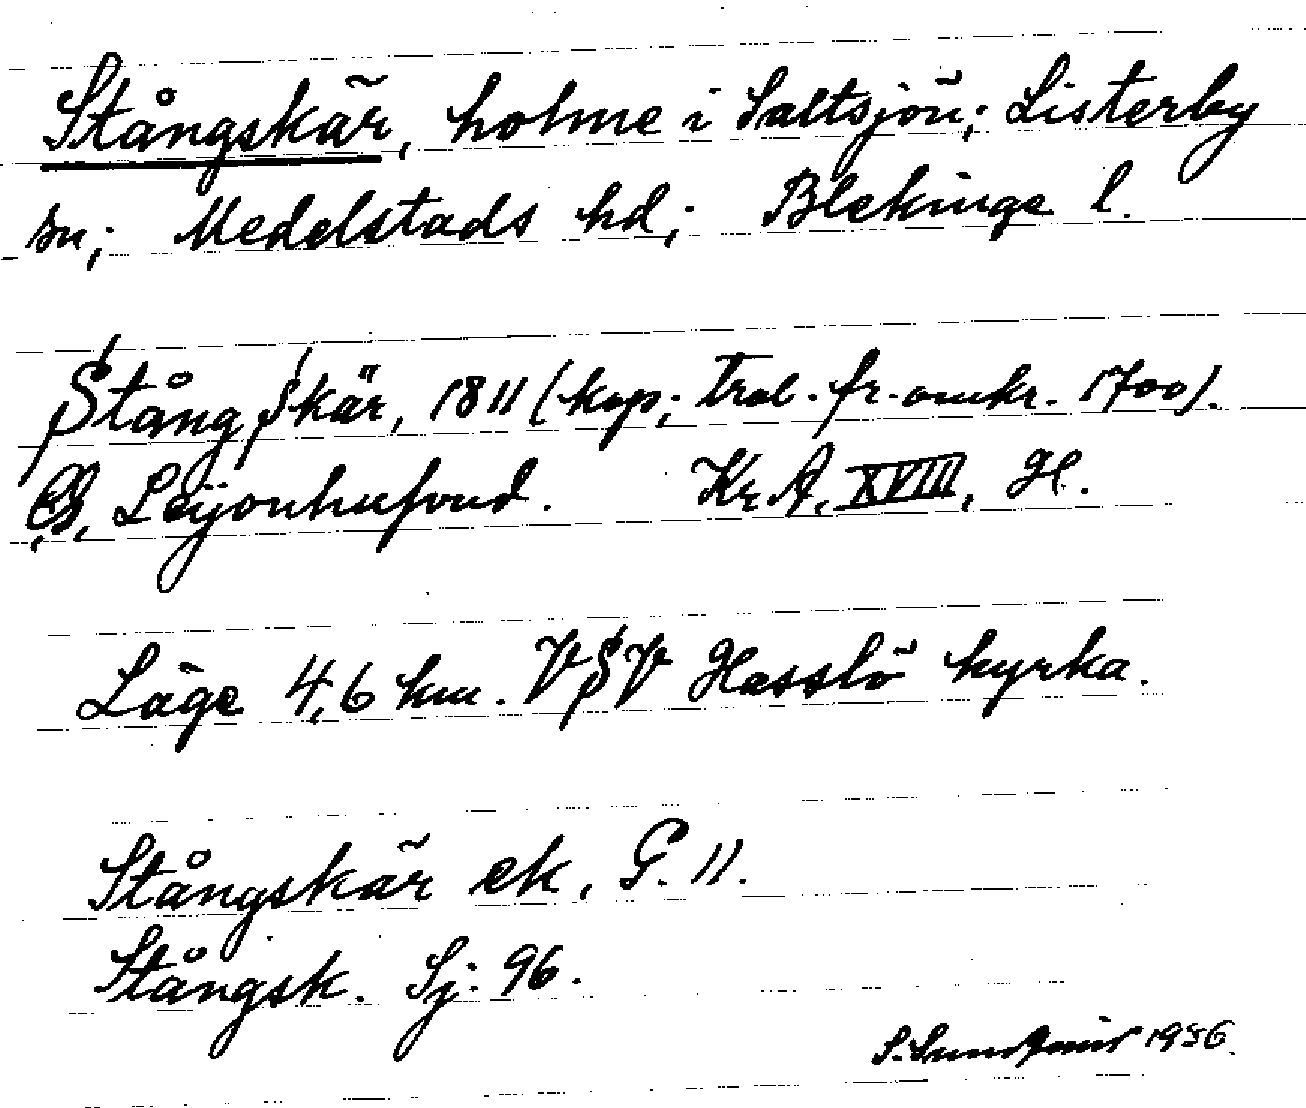 Stångskär, holme i Saltsjön; Listerby
sn; Medelstads hd; Blekinge l.
Stång Skär, 1811 (kop; trol. fr. omkr. 1700).
B. Leijonhufvud. Kr A, XVIII, H.
Läge 4,6 km. VSV Hasslö kyrka.
Stångskär ek, G. 11.
Stångsk. Sj: 96.
S. 1936.